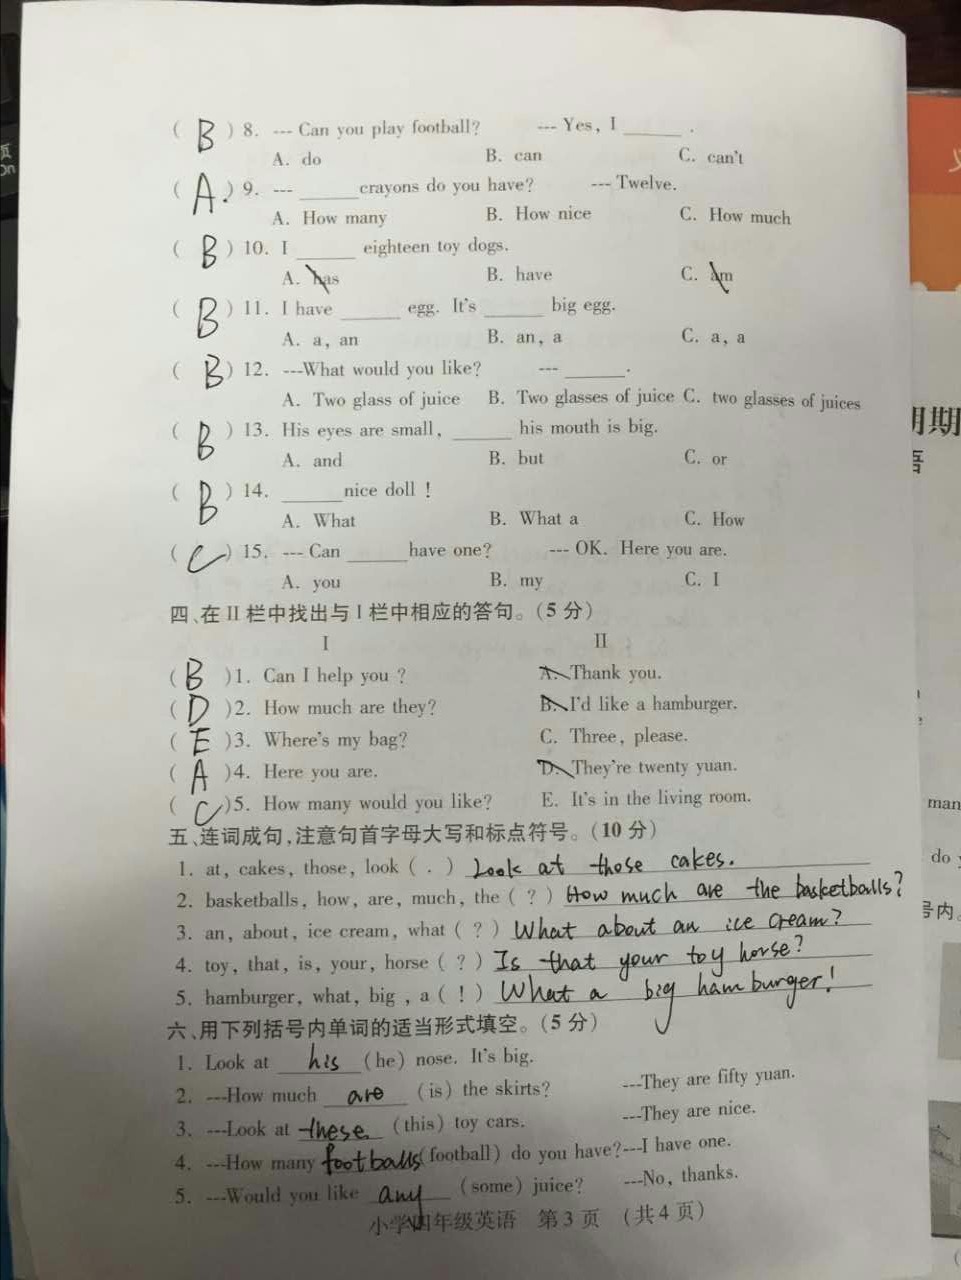 ( B ) 8. --- Can you play football? --- Yes, I ______ .
A. do B. can C. can't
( A. ) 9. --- ______crayons do you have? --- Twelve.
A. How many B. How nice C. How much
( B ) 10. I ______ eighteen toy dogs.
A. has B. have C. am
( B ) 11. I have ______ egg. It's ______ big egg.
A. a, an B. an, a C. a, a
( B ) 12. ---What would you like? --- ______.
A. Two glass of juice B. Two glasses of juice C. two glasses of juices
( B ) 13. His eyes are small, ______ his mouth is big.
A. and B. but C. or
( B ) 14. ______nice doll !
A. What B. What a C. How
( C ) 15. --- Can ______have one? --- OK. Here you are.
A. you B. my C. I
四、在 II 栏中找出与 I 栏中相应的答句。(5 分)
I II
( B )1. Can I help you ? A. Thank you.
( D )2. How much are they? B. I'd like a hamburger.
( E )3. Where's my bag? C. Three, please.
( A )4. Here you are. D. They're twenty yuan.
( C )5. How many would you like? E. It's in the living room.
五、连词成句,注意句首字母大写和标点符号。(10 分)
1. at, cakes, those, look ( . ) Look at those cakes.
2. basketballs, how, are, much, the ( ? ) How much are the basketballs?
3. an, about, ice cream, what ( ? ) What about an ice cream?
4. toy, that, is, your, horse ( ? ) Is that your toy horse?
5. hamburger, what, big , a ( ! ) What a big hamburger!
六、用下列括号内单词的适当形式填空。(5 分)
1. Look at his (he) nose. It's big.
2. ---How much are (is) the skirts? ---They are fifty yuan.
3. ---Look at these (this) toy cars. ---They are nice.
4. ---How many footballs (football) do you have?---I have one.
5. ---Would you like any (some) juice? ---No, thanks.
小学四年级英语 第 3 页 (共 4 页)
期
语
man
do
号内。